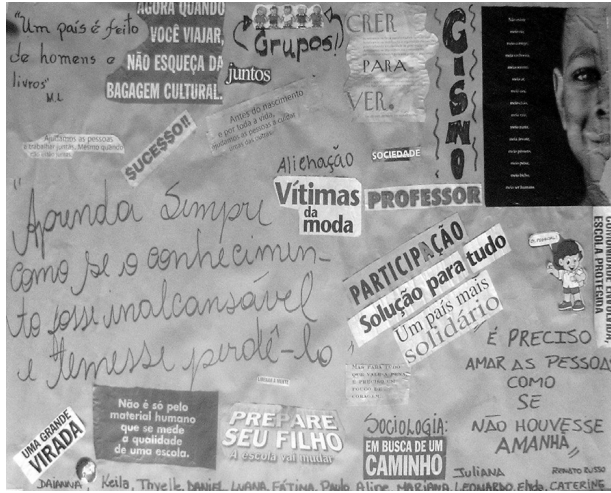 "Um país é feito
de homens e
livros"
M.L
AGORA QUANDO
VOCÊ VIAJAR,
NÃO ESQUEÇA DA
BAGAGEM CULTURAL.
Grupos!
juntos
CRER
PARA
VER.
GISMO
Ajudamos as pessoas
a trabalhar juntas. Mesmo quando
SUCESSO!!
Antes do nascimento
e por toda a vida,
ajudamos as pessoas a
Alienação
SOCIEDADE
Vítimas
da
moda
PROFESSOR
"Aprenda Sempre
como se o conhecimen-
to fosse inalcansável
e temesse perdê-lo
PARTICIPAÇÃO
Solução para tudo
Um país mais
solidário
COMUNIDADE ENVOLVIDA,
ESCOLA PROTEGIDA
"É PRECISO
AMAR AS PESSOAS
COMO
SE
NÃO HOUVESSE
AMANHÃ"
RENATO RUSSO
MAS PARA TUDO
Não é só pelo
material humano
que se mede
a qualidade
de uma escola.
PREPARE
SEU FILHO
A escola vai mudar
Sociologia:
EM BUSCA DE UM
CAMINHO
UMA GRANDE
VIRADA
DAIANNA, Keila, Thyelle, DANIEL, LUANA, FÁTIMA, Paulo, Aline, MARIANA, LEONARDO, Elida, CATERINE
Juliana